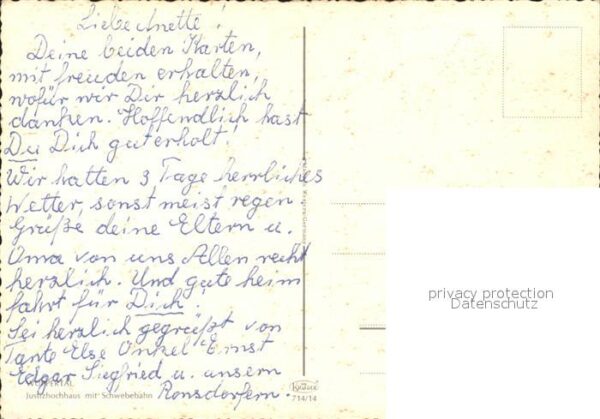 Liebe Anette!
Deine beiden Karten,
mit freuden erhalten,
wofür wir Dir herzlich
danken. Hoffendlich hast
Du Dich gut erholt!
Wir hatten 3 Tage herrliches
Wetter, sonst meist regen.
Grüße deine Eltern u.
Oma von uns Allen recht
herzlich. Und gute heim
fahrt für Dich.
Sei herzlich gegrüßt von
Tante Else Onkel Ernst
Edgar Siegfried u. unsern
Ronsdorfern.
WUPPERTAL
Justizhochhaus mit Schwebebahn
Krüger
714/14
privacy protection
Datenschutz